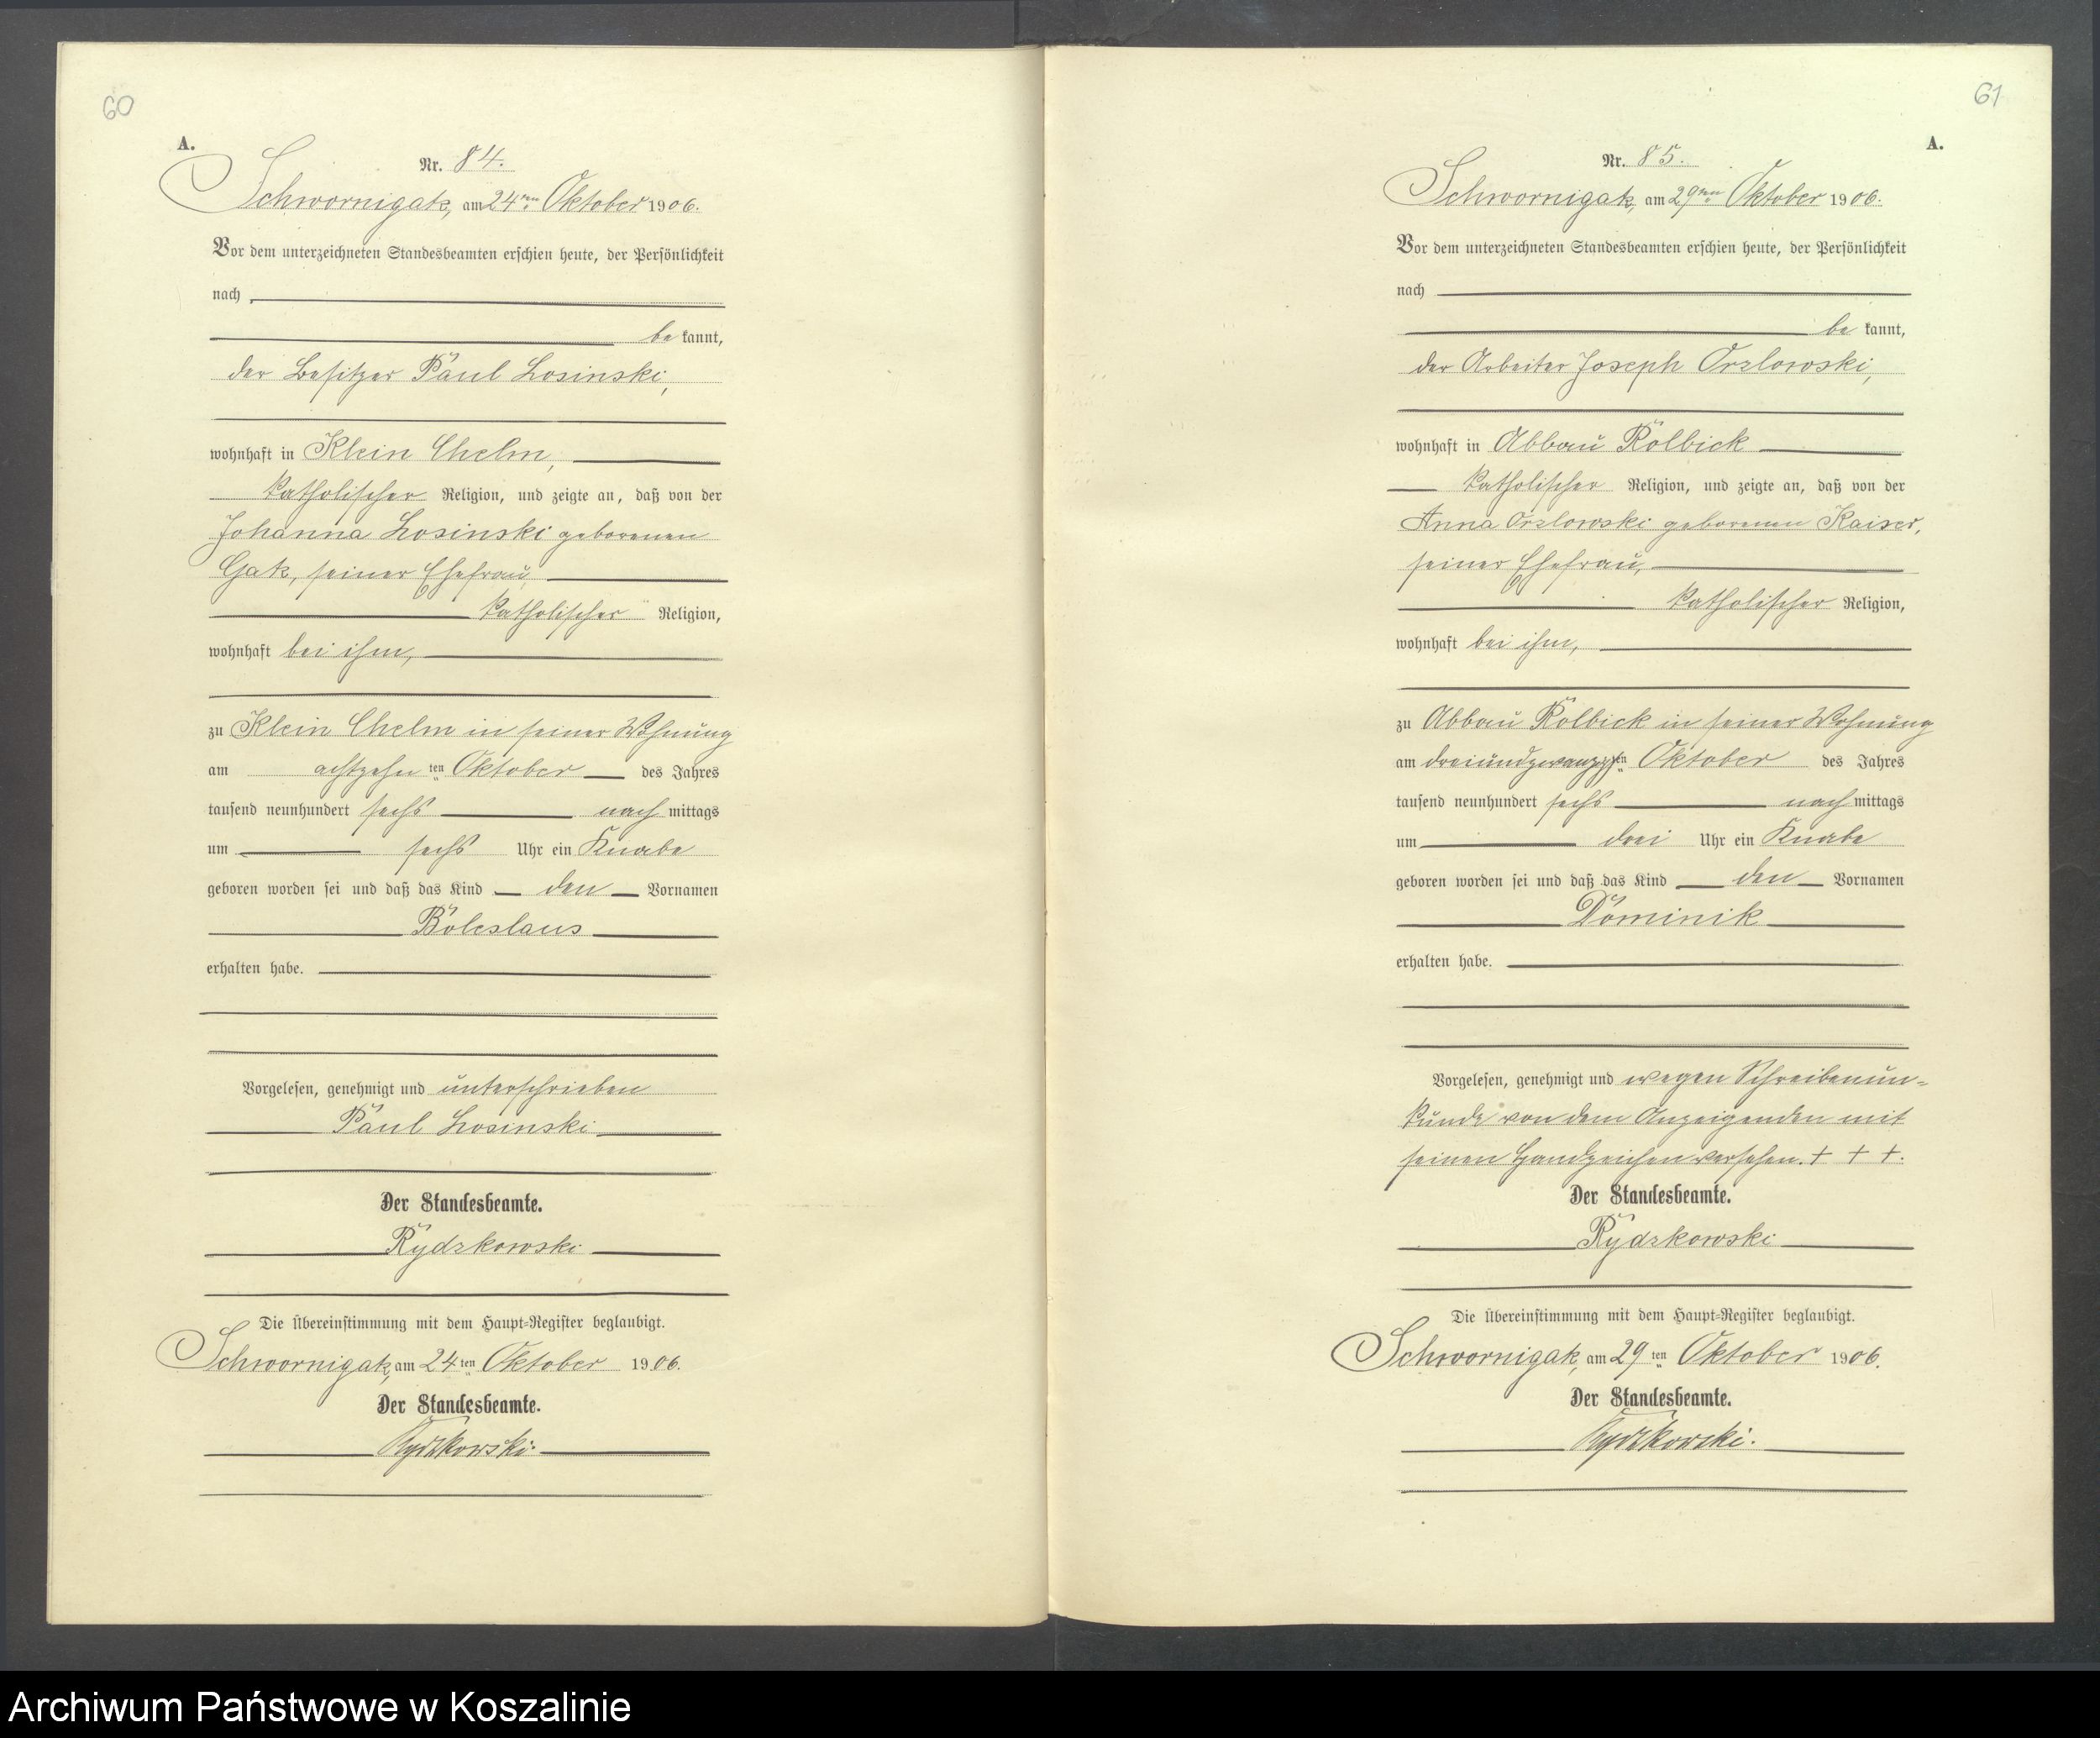 60
A.
Nr. 84.
Schwornigatz, am 24ten Oktober 1906.
Vor dem unterzeichneten Standesbeamten erschien heute, der Persönlichkeit
nach
be kannt,
der Besitzer Paul Losinski,
wohnhaft in Klein Chelm,
katholischer Religion, und zeigte an, daß von der
Johanna Losinski geborenen
Gatz, seiner Ehefrau,
katholischer Religion,
wohnhaft bei ihm,
zu Klein Chelm in seiner Wohnung
am achtzehnten Oktober des Jahres
tausend neunhundert sechs nach mittags
um sechs Uhr ein Knabe
geboren worden sei und daß das Kind den Vornamen
Boleslaus
erhalten habe.
Vorgelesen, genehmigt und unterschrieben
Paul Losinski
Der Standesbeamte.
Rydzkowski
Die Übereinstimmung mit dem Haupt-Register beglaubigt.
Schwornigatz, am 24ten Oktober 1906.
Der Standesbeamte.
Rydzkowski.
61
A.
Nr. 85.
Schwornigatz, am 29ten Oktober 1906.
Vor dem unterzeichneten Standesbeamten erschien heute, der Persönlichkeit
nach
be kannt,
der Arbeiter Joseph Orzlowski,
wohnhaft in Abbau Rolbick
katholischer Religion, und zeigte an, daß von der
Anna Orzlowski geborenen Kaiser,
seiner Ehefrau,
katholischer Religion,
wohnhaft bei ihm,
zu Abbau Rolbick in seiner Wohnung
am dreiundzwanzigsten Oktober des Jahres
tausend neunhundert sechs nach mittags
um drei Uhr ein Knabe
geboren worden sei und daß das Kind den Vornamen
Dominik
erhalten habe.
Vorgelesen, genehmigt und wegen Schreibenun-
kunde von dem Anzeigenden mit
seinen Handzeichen versehen. + + +.
Der Standesbeamte.
Rydzkowski
Die Übereinstimmung mit dem Haupt-Register beglaubigt.
Schwornigatz, am 29ten Oktober 1906.
Der Standesbeamte.
Rydzkowski.
Archiwum Państwowe w Koszalinie